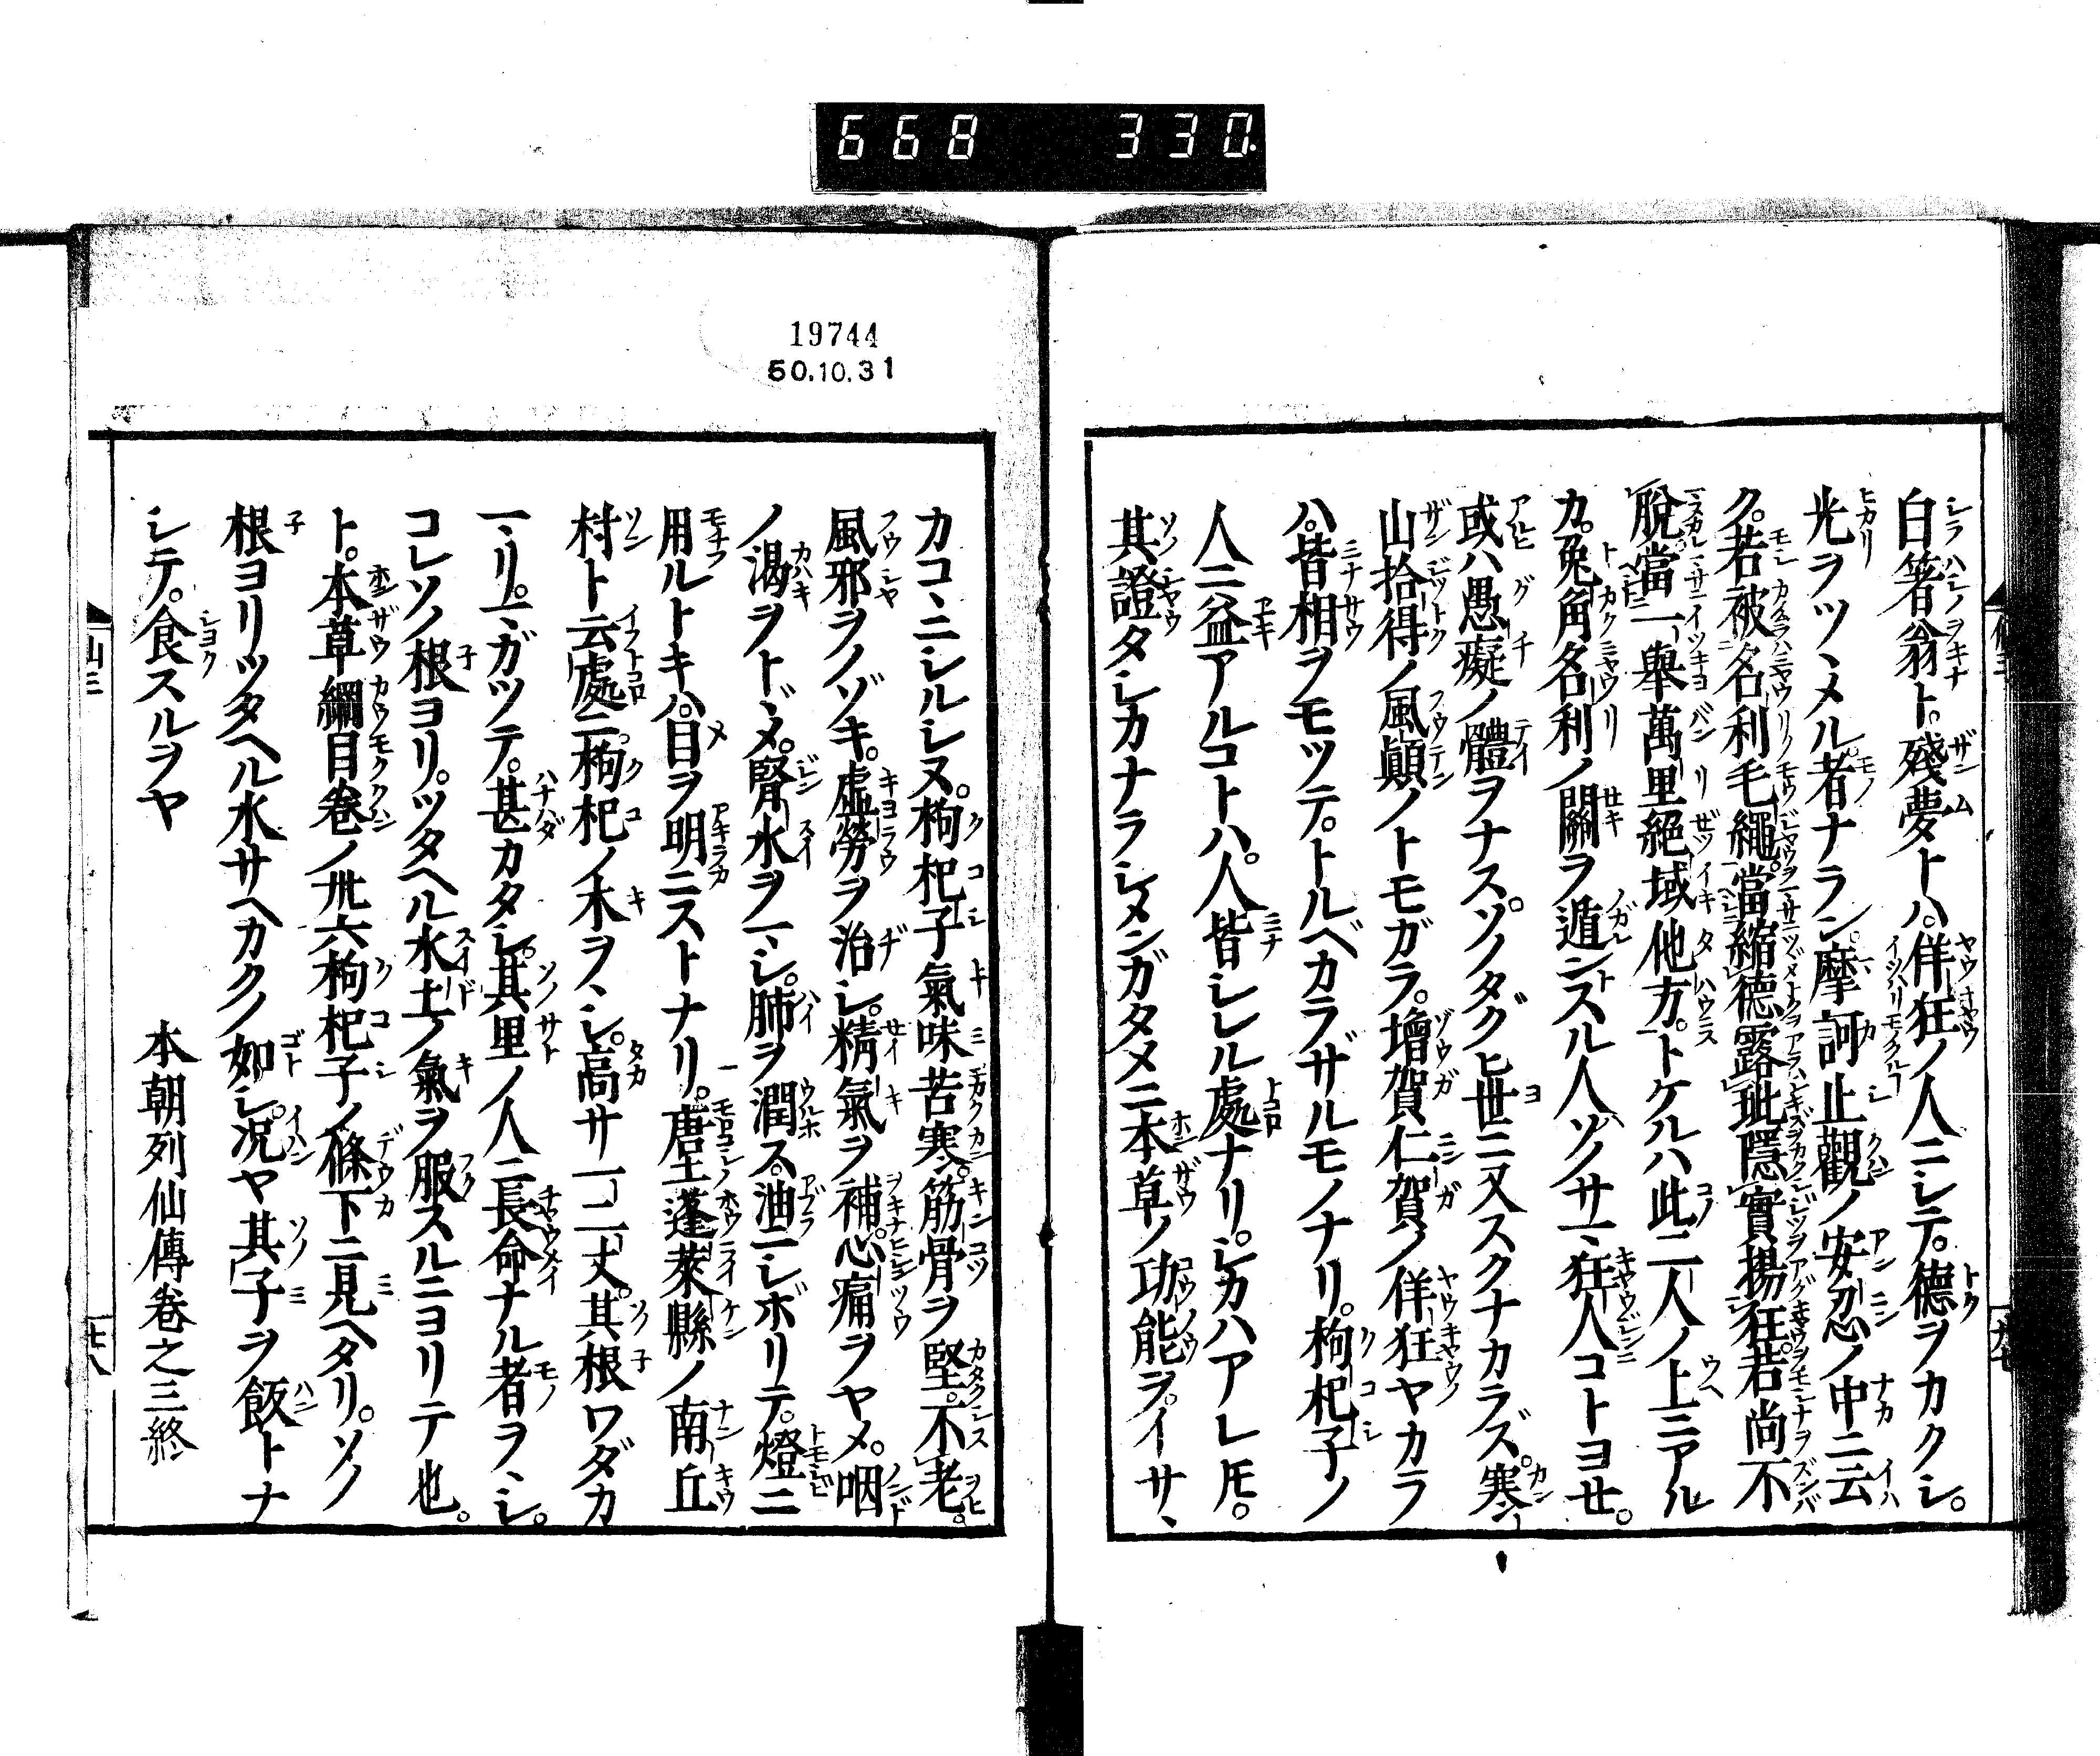 668 330
白箸翁ト。殘夢トハ。佯狂ノ人ニシテ。德ヲカクシ。
光ヲツヽメル者ナラン。摩訶止觀ノ安忍ノ中ニ云
ク。若被名利毛繩。當縮德露玼隱實揚狂。若尚不
脫當一擧萬里絕域他方。トケルハ此二人ノ上ニアル
カ。兔角名利ノ關ヲ遁ントスル人ソノサマ狂人コトヨセ。
或ハ愚癡ノ體ヲナス。ソノタグヒ世ニ又スクナカラズ。寒
山拾得ノ風顚ノトモガラ。增賀仁賀ノ佯狂ヤカラ
ハ。皆相ヲモツテ。トルベカラザルモノナリ。枸杞子ノ
人ニ益アルコトハ。人皆シレル處ナリ。シカハアレ𪜈。
其證タシカナラシメンガタメニ本草ノ功能ヲ。イサヽ
カコヽニシルシヌ。枸杞子氣味苦寒。筋骨ヲ堅。不老。
風邪ヲノゾキ。虛勞ヲ治シ。精氣ヲ補。心痛ヲヤメ。咽
ノ渴ヲトヾメ。腎水ヲマシ。肺ヲ潤ス。油ニシボリテ。燈ニ
用ルトキハ。目ヲ明ニストナリ。唐土蓬萊縣ノ南丘
村ト云處ニ。枸杞ノ木ヲヽシ。高サ一二丈。其根ワダカ
マリ。マガツテ。甚カタシ。其里ノ人ニ長命ナル者ヲヽシ。
コレソノ根ヨリ。ツタヘル水土ノ氣ヲ服スルニヨリテ也。
ト。本草綱目卷ノ卅六枸杞子ノ條下ニ見ヘタリ。ソノ
根ヨリツタヘル水サヘカクノ如シ。況ヤ其子ヲ飯トナ
シテ。食スルヲヤ
本朝列仙傳卷之三終
19744
50.10.31